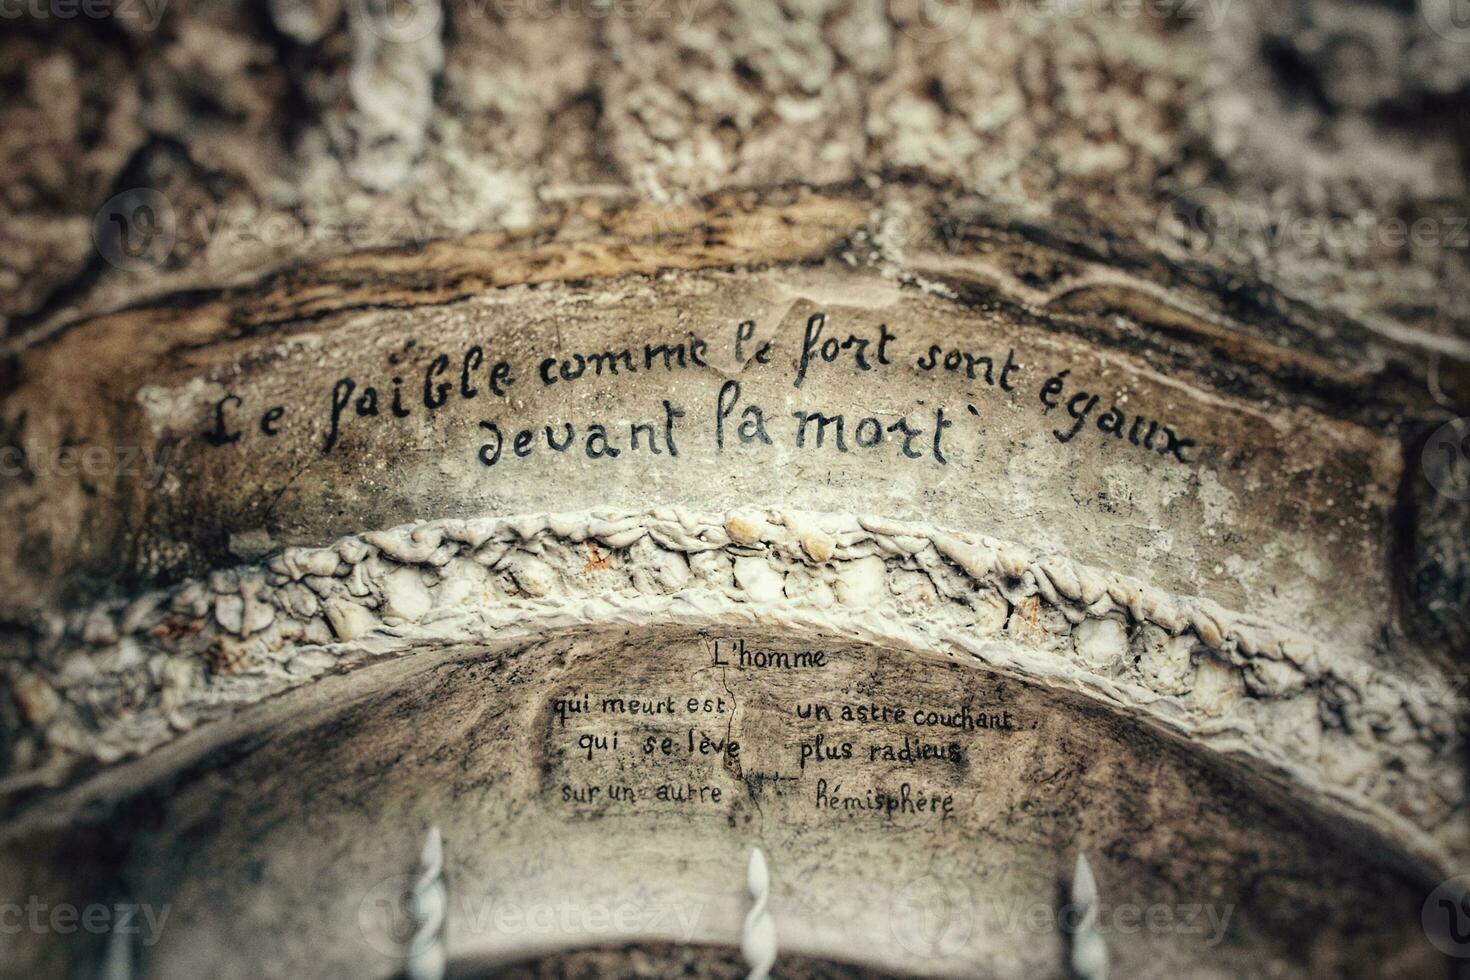 Le faible comme le fort sont égaux
devant la mort
L'homme
qui meurt est un astre couchant
qui se lève plus radieus
sur un autre hémisphère